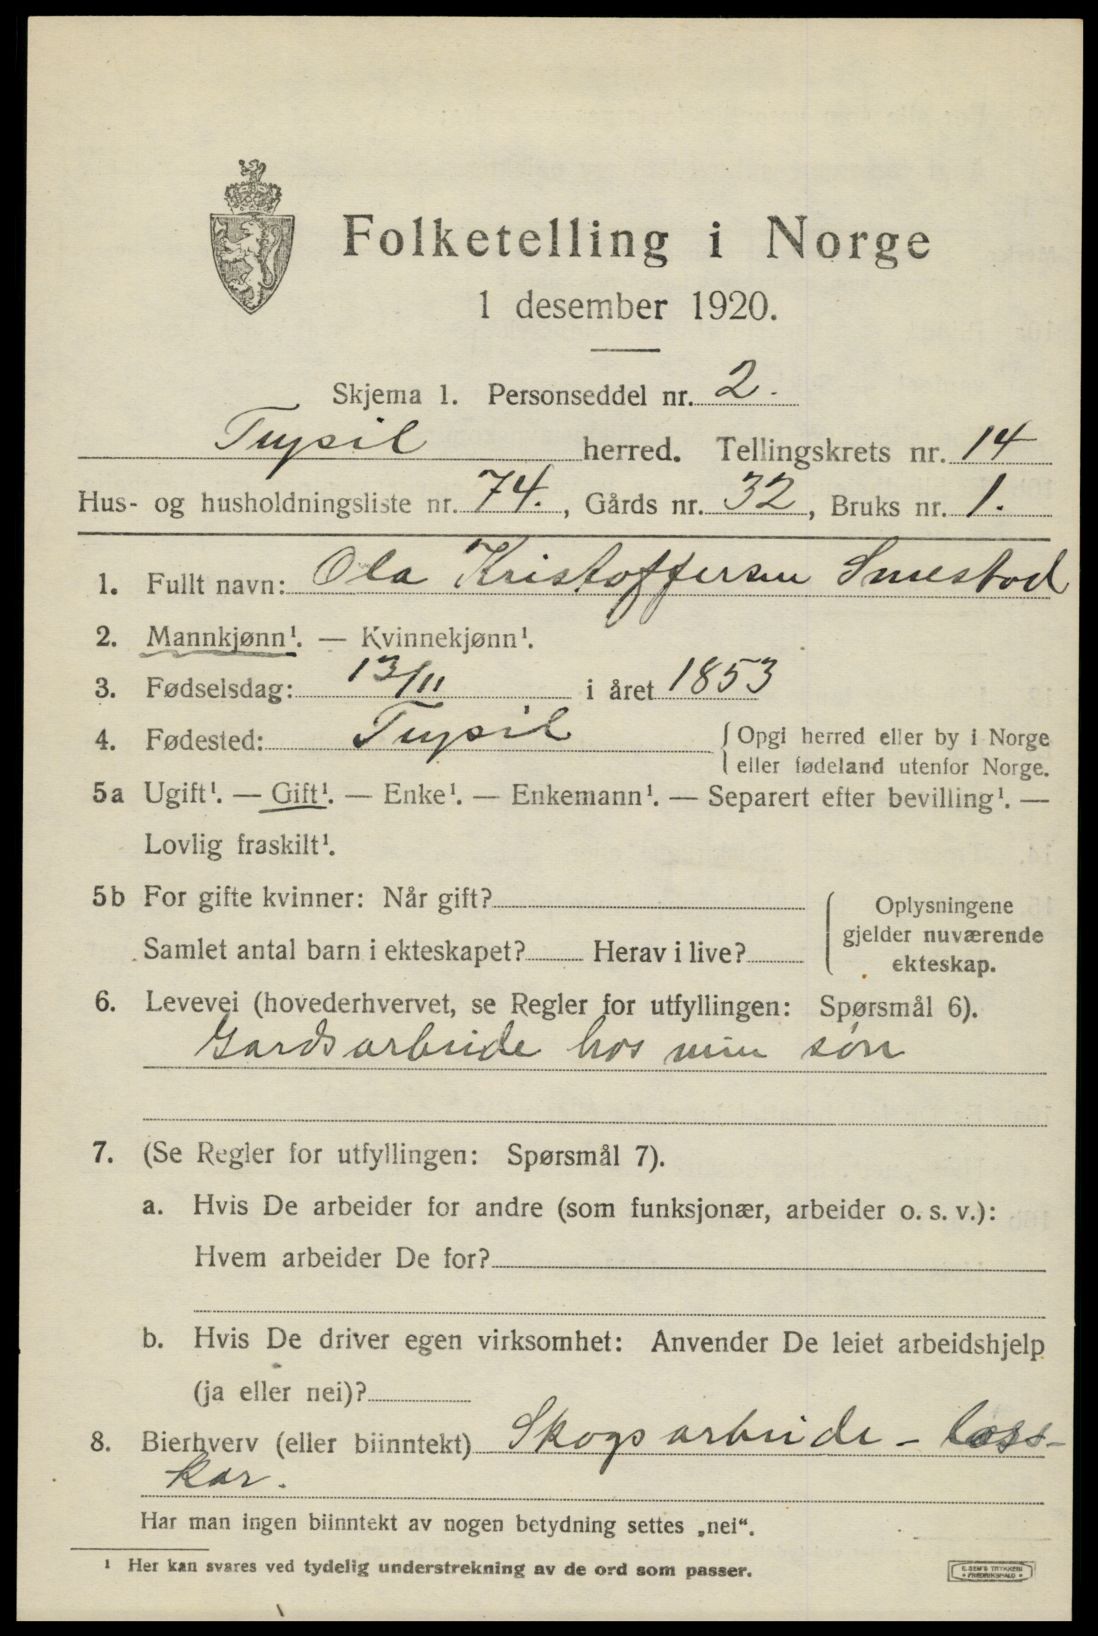 Folketelling i Norge
1 desember 1920.
Skjema 1. Personseddel nr. 2.
Trysil herred. Tellingskrets nr. 14
Hus- og husholdningsliste nr. 74., Gårds nr. 32, Bruks nr. 1.
1. Fullt navn: Ola Kristoffersen Smestad
2. Mannkjønn¹. — Kvinnekjønn¹.
3. Fødselsdag: 13/11 i året 1853
4. Fødested: Trysil { Opgi herred eller by i Norge
eller fødeland utenfor Norge.
5a Ugift¹. — Gift¹. — Enke¹. — Enkemann¹. — Separert efter bevilling¹. —
Lovlig fraskilt¹.
5b For gifte kvinner: Når gift?
Samlet antal barn i ekteskapet? Herav i live?
Oplysningene
gjelder nuværende
ekteskap.
6. Levevei (hovederhvervet, se Regler for utfyllingen: Spørsmål 6).
Gardsarbeide hos min søn
7. (Se Regler for utfyllingen: Spørsmål 7).
a. Hvis De arbeider for andre (som funksjonær, arbeider o. s. v.):
Hvem arbeider De for?
b. Hvis De driver egen virksomhet: Anvender De leiet arbeidshjelp
(ja eller nei)?
8. Bierhverv (eller biinntekt) Skogsarbeide - løss-
kar.
Har man ingen biinntekt av nogen betydning settes „nei“.
¹ Her kan svares ved tydelig understrekning av de ord som passer.